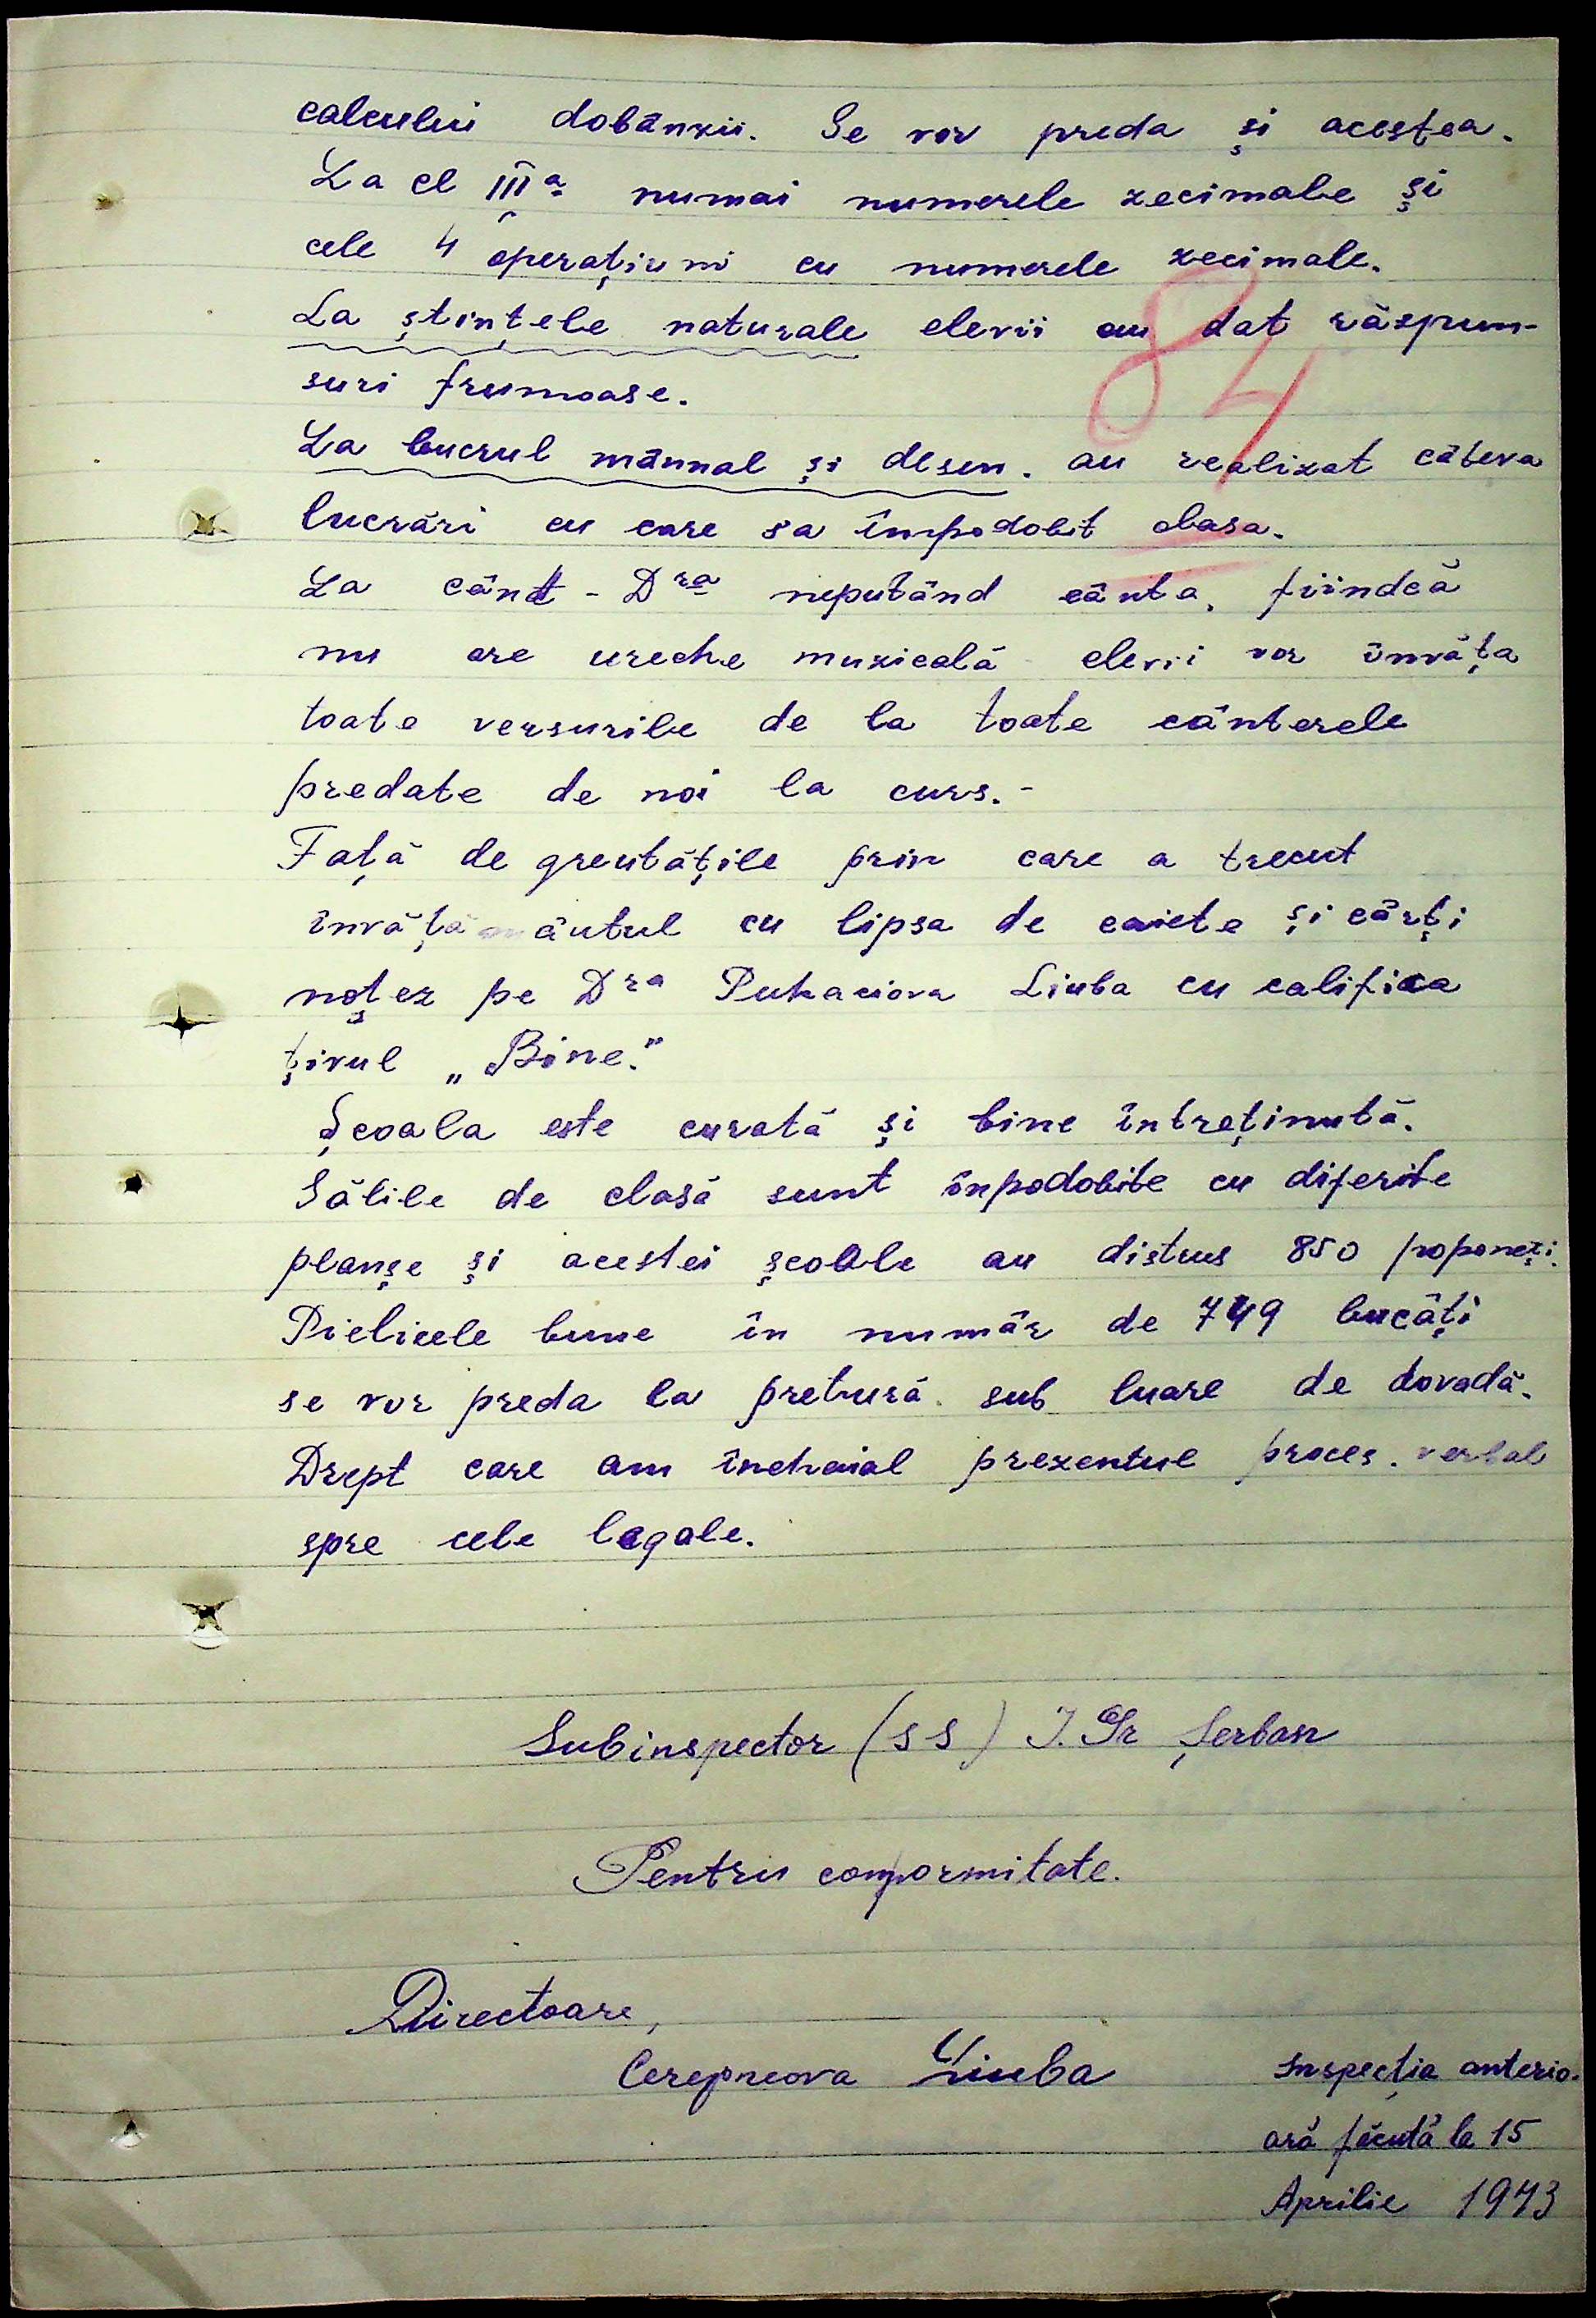 calcului dobânzii. Se vor preda și acestea.
La cl IIIa numai numerele zecimale și
cele 4 operațiuni cu numerele zecimale.
84
La ștințele naturale elevii au dat răspun-
suri frumoase.
La lucrul mânual și desen. au realizat câteva
lucrări cu care sa împodobit clasa.
La cânt - Dra neputând cânta, fiindcă
nu are ureche muzicală elevii vor învăța
toate versurile de la toate cânterele
predate de noi la curs.-
Față de greutățile prin care a trecut
învățământul cu lipsa de caiete și cărți
notez pe Dra Pukaciova Liuba cu califica
țivul „Bine."
Școala este curată și bine întreținută.
Sălile de clasă sunt înpodobite cu diferite
planșe și acestei școale au distrus 850 popaneți.
Pielicele bune în număr de 749 bucăți
se vor preda la pretură sub luare de dovadă.
Drept care am încheiat prezentul proces. verbal
spre cele legale.
Subinspector (SS) I. Gr Șerban
Pentru conformitate.
Directoare,
Cerepneova Liuba
Inspecția anterio-
ară făcută la 15
Aprilie 1943